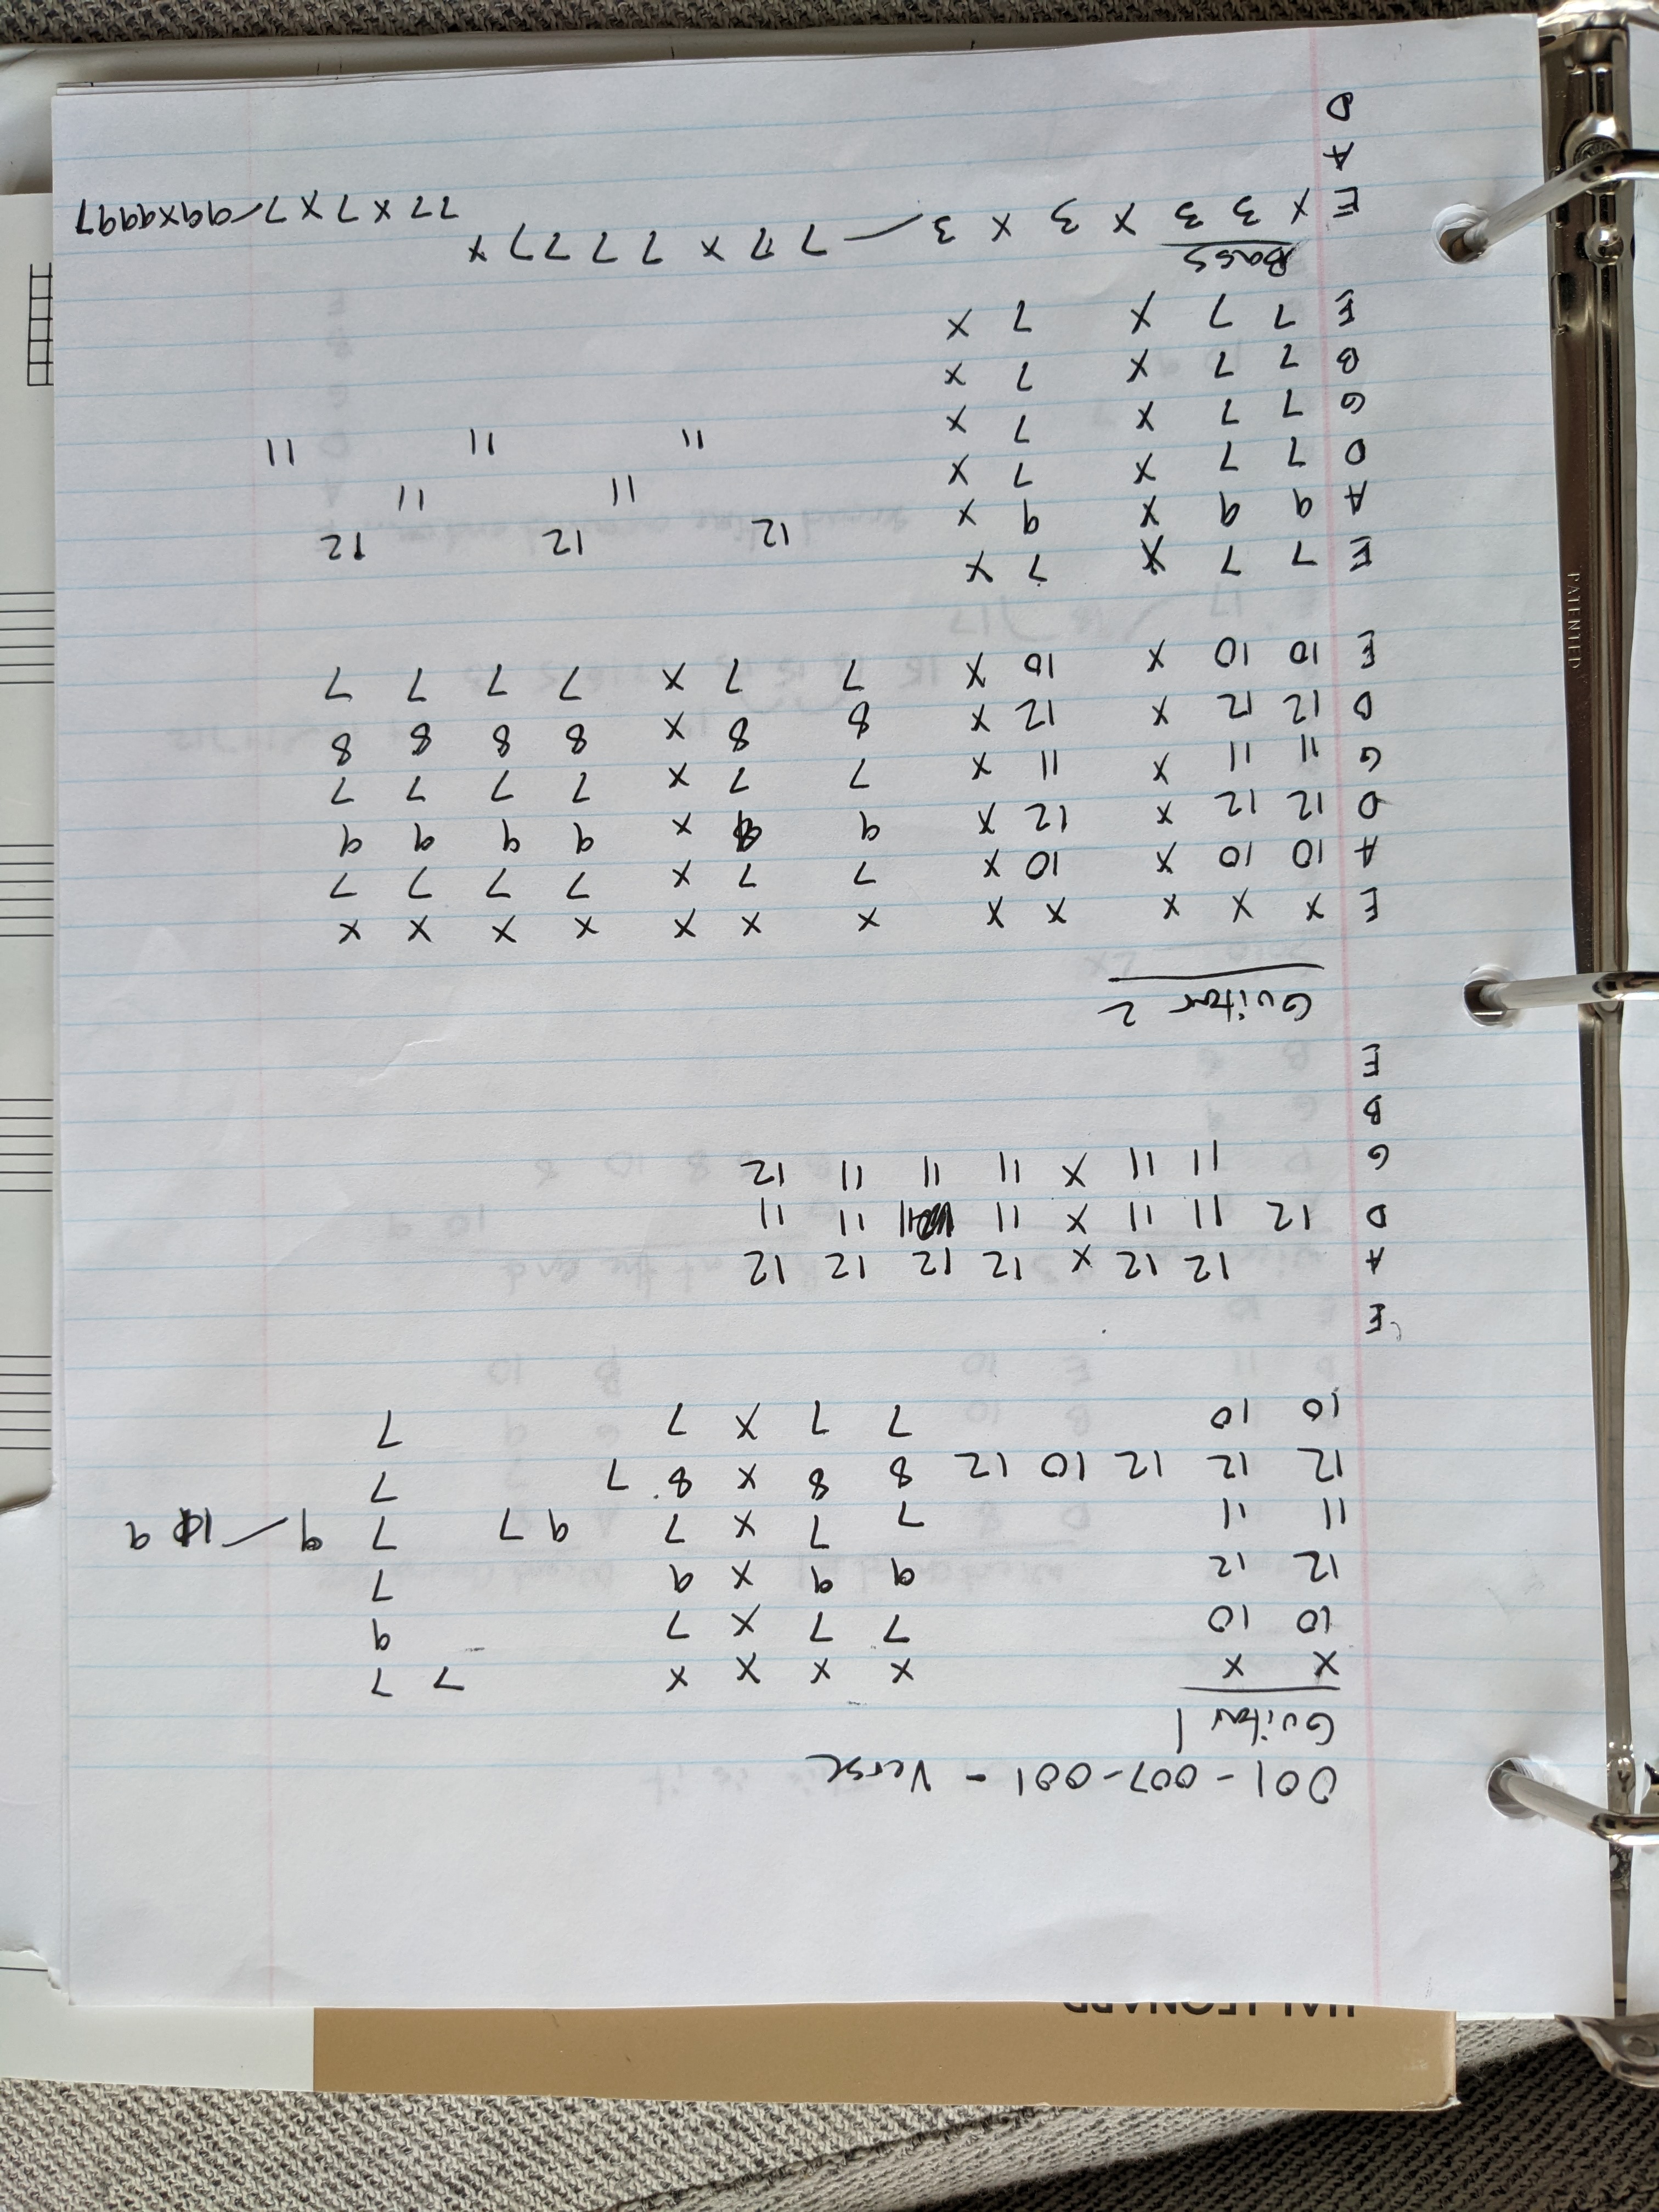 001-007-001 - Verse
Guitar 1
x x x x x x 7 7
10 10 7 7 x 7 9
12 12 9 9 x 9 7
11 11 7 7 x 7 9 7 7 9 — 9
12 12 12 10 12 8 8 x 8 7 7
10 10 7 7 x 7 7
E
A 12 12 x 12 12 12 12
D 12 11 11 x 11 11 11 11
G 11 11 x 11 11 11 12
B
E
Guitar 2
E x x x x x x x x x x x x
A 10 10 x 10 x 7 7 x 7 7 7 7
D 12 12 x 12 x 9 9 x 9 9 9 9
G 11 11 x 11 x 7 7 x 7 7 7 7
D 12 12 x 12 x 8 8 x 8 8 8 8
E 10 10 x 10 x 7 7 x 7 7 7 7
E 7 7 x 7 x 12 12 12
A 9 9 x 9 x 11 11
D 7 7 x 7 x 11 11 11
G 7 7 x 7 x
B 7 7 x 7 x
E 7 7 x 7 x
Bass
E x 3 3 x 3 x 3 — 7 7 7 x 7 7 7 7 x 7 7 x 7 x 7 — 99x9997
A
D
HAL LEONARD
PATENTED